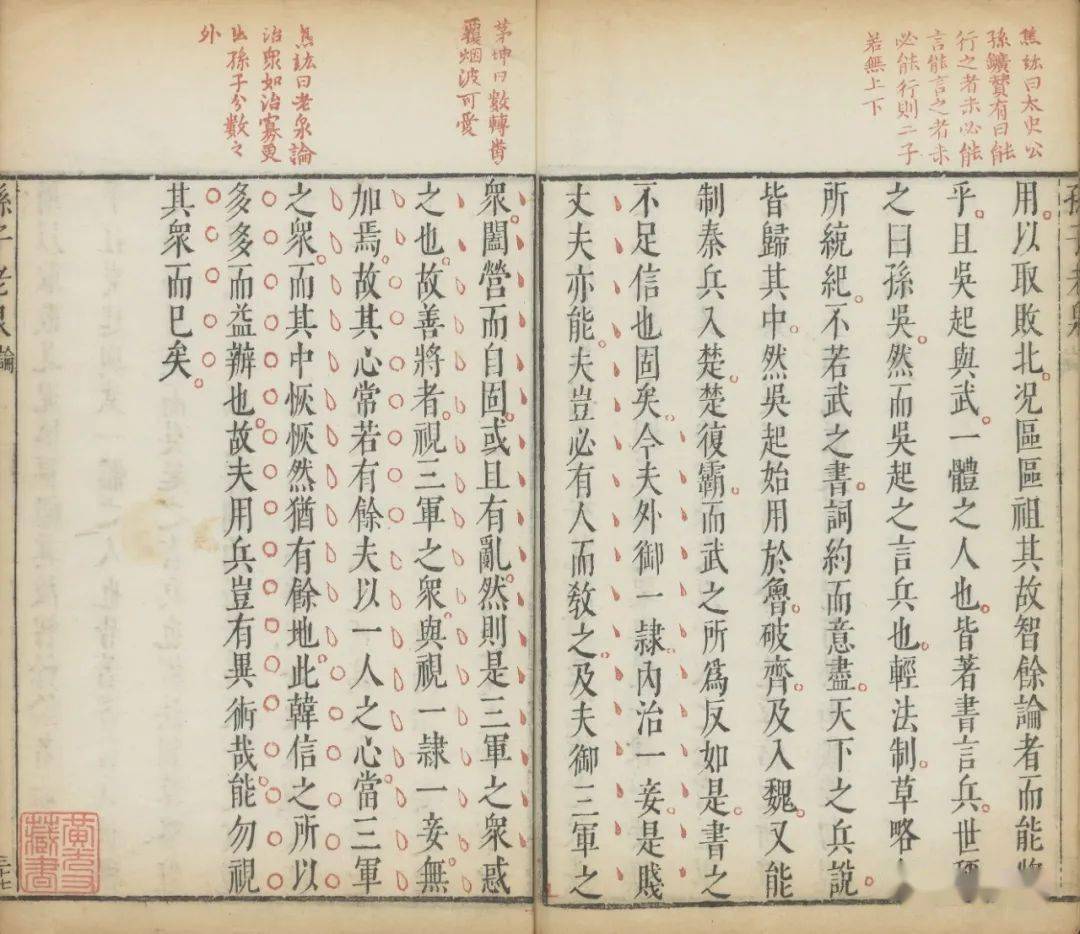 焦竑曰太史公
孫鑛贊有曰能
行之者未必能
言能言之者未
必能行則二子
若無上下
用以取敗北况區區祖其故智餘論者而能
乎且吳起與武一體之人也皆著書言兵世
之曰孫吳然而吳起之言兵也輕法制草略
所統紀不若武之書詞約而意盡天下之兵說
皆歸其中然吳起始用於魯破齊及入魏又能
制秦兵入楚楚復霸而武之所爲反如是書之
不足信也固矣今夫外御一隸內治一妾是賤
丈夫亦能夫豈必有人而敎之及夫御三軍之
茅坤曰數轉
烟波可愛
焦竑曰老泉論
治衆如治寡更
出孫子分數之
外
衆闔營而自固或且有亂然則是三軍之衆惑
之也故善將者視三軍之衆與視一隸一妾無
加焉故其心常若有餘夫以一人之心當三軍
之衆而其中恢恢然猶有餘地此韓信之所以
多多而益辦也故夫用兵豈有異術哉能勿視
其衆而已矣
孫子老泉論
三十七
藏書